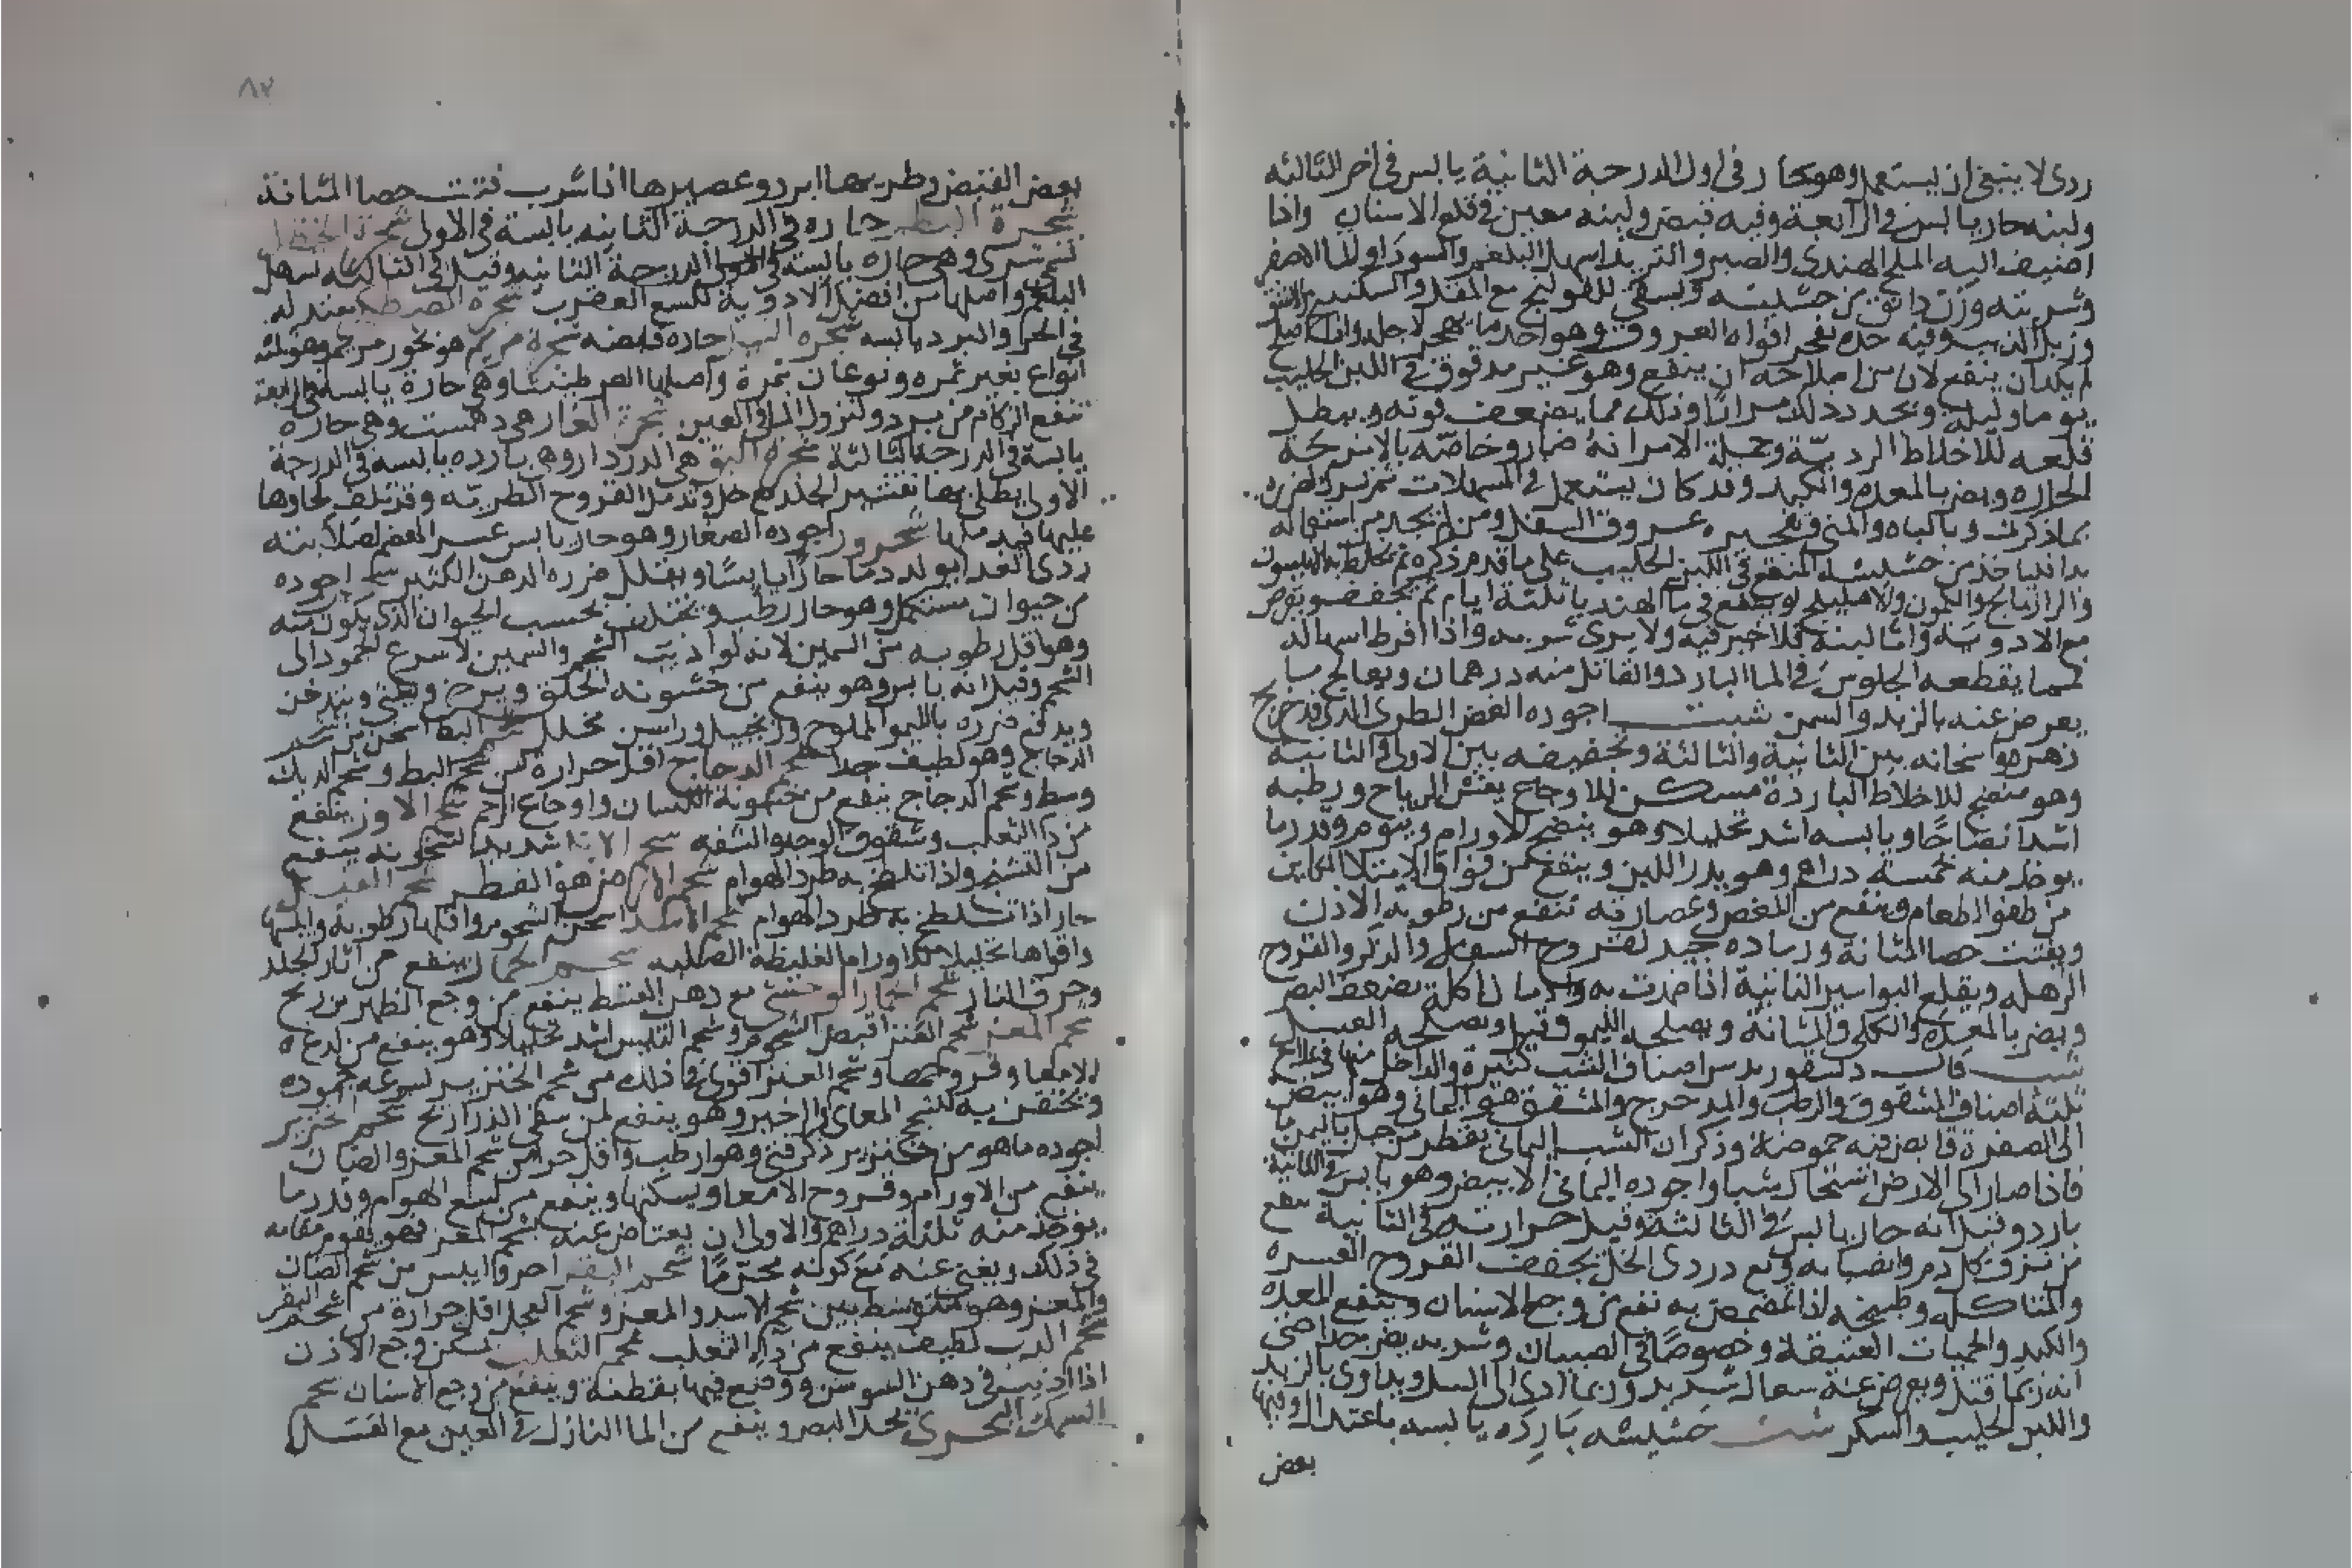 ردى لا ينبغى ان يستعمل وهو حار فى اول الدرجة الثانية يابس فى اخر الثالثه
ولبنه حار يابس فى الرابعة وفيه قبض ولبنه معين فى قلع الاسنان واذا
اضيف اليه الملح الهندى والصبر والتربد اسهل البلغم والسودا والما الاصفر
وشربته وزن دانق من حشيشه ويسقى للقولنج مع المقل والسكبينج
وزبل الذيب وفيه حده يفجر افواه العروق وهو احد ما يهجر لاجله واذا
لم يكد ان ينفع لان من اصلاحه ان ينقع وهو غير مدقوق فى اللبن الحليب
يوما وليله ويجدد ذلك مرارا وذلك مما يضعف قوته ويبطل
قلعه للاخلاط الرديه وجملة الامر انه ضار وخاصه بالامزجة
الحاره ويضر بالمعده والكبد وقد كان يستعمل فى المسهلات ثم ترك
بما ذكرت وبالباه والمنى وتفجيره عروق السفل ومن لم يجد من استعماله
بدا فلياخذ من حشيشه المنقع فى اللبن الحليب على ما قدم ذكره ثم يخلط به الانيسون
والرازيانج والكمون والاهليلج او ينقع فى ما الهندبا ثلثة ايام ثم يجفف ويقرص
مع الادويه واما لبنه فلا خير فيه ولا يرى شربه واذا افرط اسهاله
فمما يقطعه الجلوس فى الما البارد والقاتل منه درهمان ويعالج ما
يعرض عنه بالزبد والسمن شبت اجوده الغض الطرى الذى قد خرج
زهره واسخانه بين الثانية والثالثة وتجفيفه بين الاولى والثانية
وهو منضج للاخلاط الباردة مسكن للاوجاع يفش الرياح ورطبه
اشد انضاجا ويابسه اشد تحليلا وهو ينضج الاورام وينوم وقدر ما
يوخذ منه خمسة دراهم وهو يدر اللبن وينفع من فواق الامتلا الكاين
من طفو الطعام وينفع من المغص وعصارته تنفع من رطوبة الاذن
ويفتت حصا المثانة ورماده جيد لقروح السفل والذكر والقروح
الرهله ويقلع البواسير الناتية اذا ضمدت به وادمان اكله يضعف البصر
ويضر بالمعده والكلى والمثانة ويصلحه الليمو وقيل ويصلحه العسل
شب قال ديسقوريدس اصناف الشب كثيرة والداخل منها فى علاج
ثلثة اصناف المشقوق والرطب والمدحرج والمشقق هو اليمانى وهو ابيض
الى الصفرة قابض فيه حموضة وذكر ان الشب اليمانى يقطر من جبل باليمن
فاذا صار الى الارض استحال شبا واجوده اليمانى الابيض وهو يابس فى الثانية
بارد وقيل انه حار يابس فى الثالثة وقيل حرارته فى الثانية ينفع
من نزف كل دم وانصبابه ومع دردى الخل يجفف القروح العسره
والمتاكله وطبيخه اذا تمضمض به نفع من وجع الاسنان وينفع المعده
والكبد والحميات العتيقة وخصوصا فى الصبيان وشربه يضر جدا حتى
انه ربما قتل ويعرض عنه سعال شديد وربما ادى الى السل ويداوى بالزبد
واللبن الحليب والسكر شبث حشيشه باردة يابسه باعتدال وفيها
بعض
٨٢
بعض القبض وطريها ابرد وعصيرها اذا شرب فتت حصا المثانة
شجرة البطم حاره فى الدرجة الثانيه يابسة فى الاول شجرة الحنظل
وهى حاره يابسه فى الدرجة الثانيه وقيل فى الثالثه تسهل
البلغم واصلها من افضل الادوية للسع العقرب شجره معتدله
فى الحر والبرد يابسه شجره التين حاده قابضه شجرة مريم هو بخور مريم وهو ثلثه
انواع بغير ثمره ونوعان بثمرة واصلها العرطنيثا وهى حارة يابسه فى الرابعة
تنفع الزكام من برد ولنزول الما فى العين شجرة الغار هى دهمست وهى حاره
يابسة فى الدرجة الثالثة شجرة البق هى الدردار وهى بارده يابسه فى الدرجة
الاولى يطلى بها تقشير الجلد مع خل وتدمل القروح الطريه وقد تلف لحاوها
عليها فيدملها شحرور اجوده الصغار وهو حار يابس عسر الهضم لصلابته
ردى الغذا يولد دما حارا يابسا ويقلل ضرره الدهن الكثير شحم اجوده
من حيوان مستكمل وهو حار رطب ويختلف بحسب الحيوان الذى يكون منه
وهو اقل رطوبه من السمين لانه لو اذيب الشحم والسمين لاسرع الجمود الى
الشحم وقيل انه يابس وهو ينفع من خشونة الحلق ويرخى ويغثى ويدخن
ويدفع ضرره بالليمو المملوح وزنجبيل وراسن مخلل شحم البط اسخن من شحم
الدجاج وهو لطيف جدا شحم الدجاج اقل حرارة من شحم البط وشحم الديك
وسط وشحم الدجاج ينفع من خشونة اللسان واوجاع الرحم شحم الاوز ينفع
من دا الثعلب وشقوق الوجه والشفه شحم شديد السخونه ينفع
من التشنج واذا تلطخ به طرد الهوام شحم
حار اذا تلطخ به طرد الهوام شحم الاسد اسخن الشحوم واقلها رطوبة وايبسها
واقواها تحليلا للاورام الغليظة الصلبه شحم الحمار ينفع من اثار الجلد
وحرق النار شحم الحمار الوحشى مع دهن القسط ينفع من وجع الظهر من ريح
شحم المعز شحم العنز اقبض الشحوم وشحم التيس اشد تحليلا وهو ينفع من لدغ
الامعا وقروحها وشحم العنز اقوى فى ذلك من شحم الخنزير لسرعه جموده
ويحتقن به لسحج المعاى والزحير وهو ينفع لمن سقى الذراريح شحم الخنزير
اجوده ما هو من خنزير ذكر فتى وهو ارطب واقل حرا من شحم المعز والضان
ينفع من الاورام وقروح الامعا ويسكنها وينفع من لسع الهوام وقدر ما
يوخذ منه ثلثة دراهم والاولى ان يعتاض عنه بشحم المعز فهو يقوم مقامه
فى ذلك ويغنى عنه مع كونه محترما شحم البقر احر وايبس من شحم الضان
والمعز وهو متوسط بين شحم الاسد والمعز وشحم العجل اقل حرارة من شحم البقر
شحم الدب لطيف ينفع من دا الثعلب شحم الثعلب يسكن وجع الاذن
اذا اذيب فى دهن السوسن ووضع فيها بقطنة وينفع من وجع الاسنان شحم
السمك البحرى يحد البصر وينفع من الما النازل فى العين مع العسل